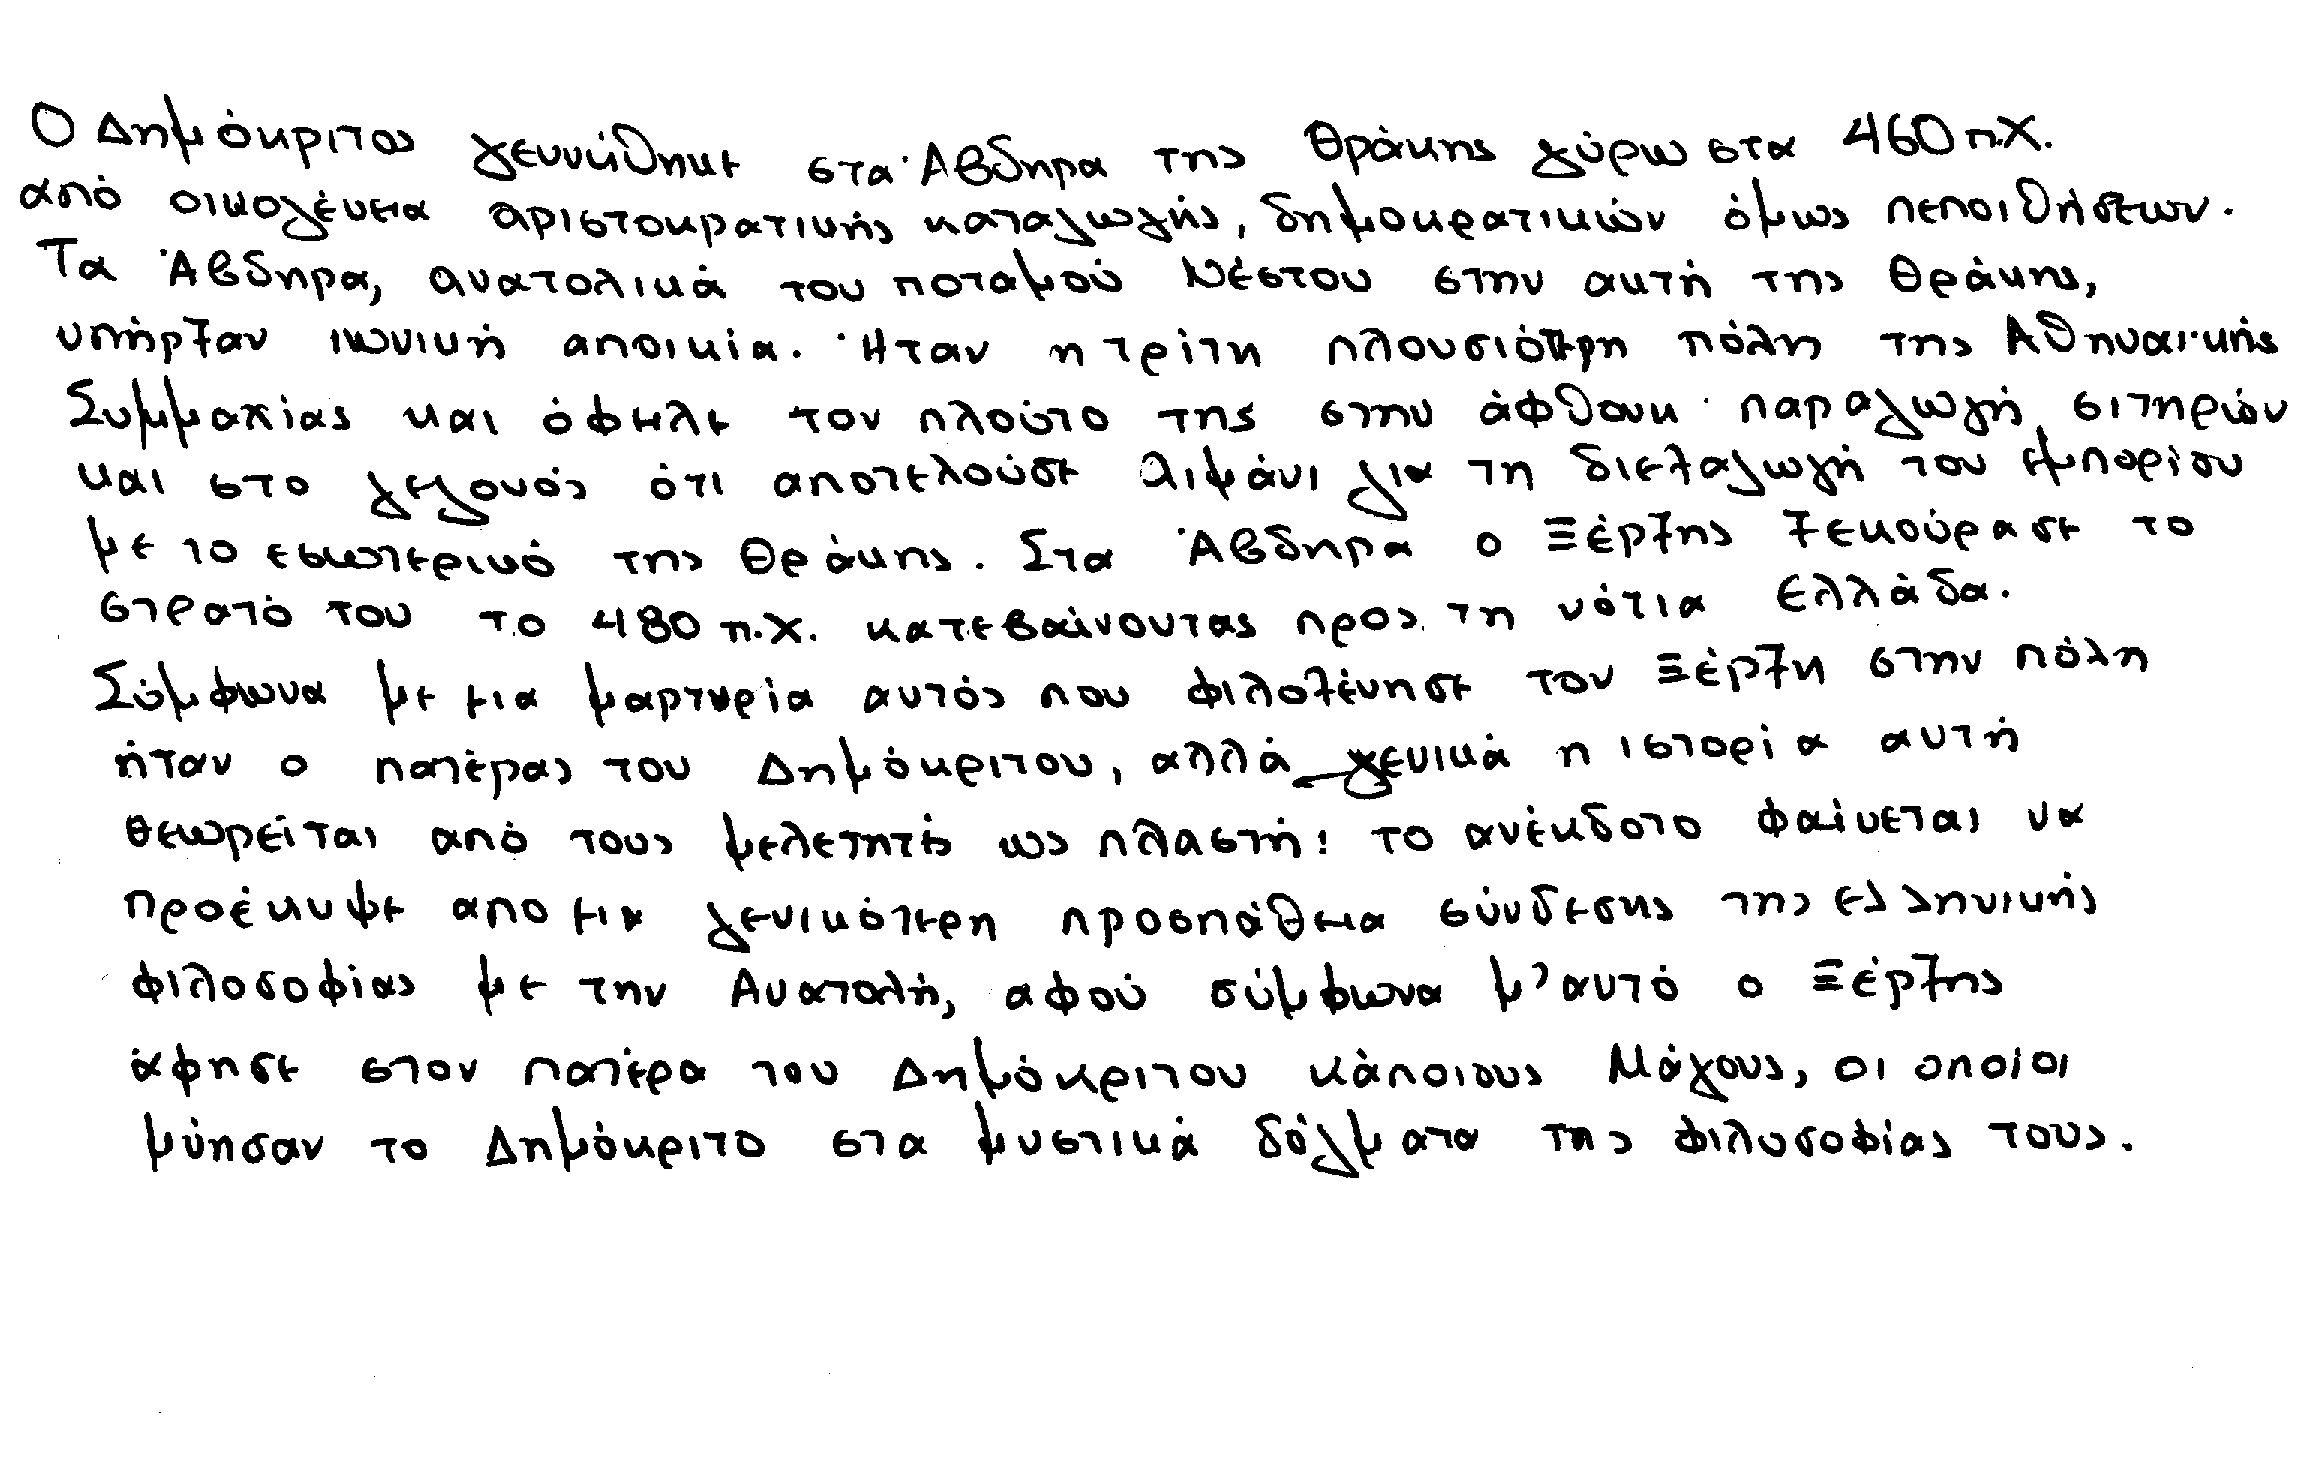 Ο Δημόκριτος γεννήθηκε στα Άβδηρα της Θράκης γύρω στα 460 π.Χ.
από οικογένεια αριστοκρατικής καταγωγής, δημοκρατικών όμως πεποιθήσεων.
Τα Άβδηρα, ανατολικά του ποταμού Νέστου στην ακτή της Θράκης,
υπήρξαν ιωνική αποικία. Ήταν η τρίτη πλουσιότερη πόλη της Αθηναϊκής
Συμμαχίας και όφειλε τον πλούτο της στην άφθονη παραγωγή σιτηρών
και στο γεγονός ότι αποτελούσε λιμάνι για τη διεξαγωγή του εμπορίου
με το εσωτερικό της Θράκης. Στα Άβδηρα ο Ξέρξης ξεκούρασε το
στρατό του το 480 π.Χ. κατεβαίνοντας προς τη νότια Ελλάδα.
Σύμφωνα με μια μαρτυρία αυτός που φιλοξένησε τον Ξέρξη στην πόλη
ήταν ο πατέρας του Δημόκριτου, αλλά γενικά η ιστορία αυτή
θεωρείται από τους μελετητές ως πλαστή: το ανέκδοτο φαίνεται να
προέκυψε απο μια γενικότερη προσπάθεια σύνδεσης της ελληνικής
φιλοσοφίας με την Ανατολή, αφού σύμφωνα μ'αυτό ο Ξέρξης
άφησε στον πατέρα του Δημόκριτου κάποιους Μάγους, οι οποίοι
μύησαν το Δημόκριτο στα μυστικά δόγματα της φιλοσοφίας τους.